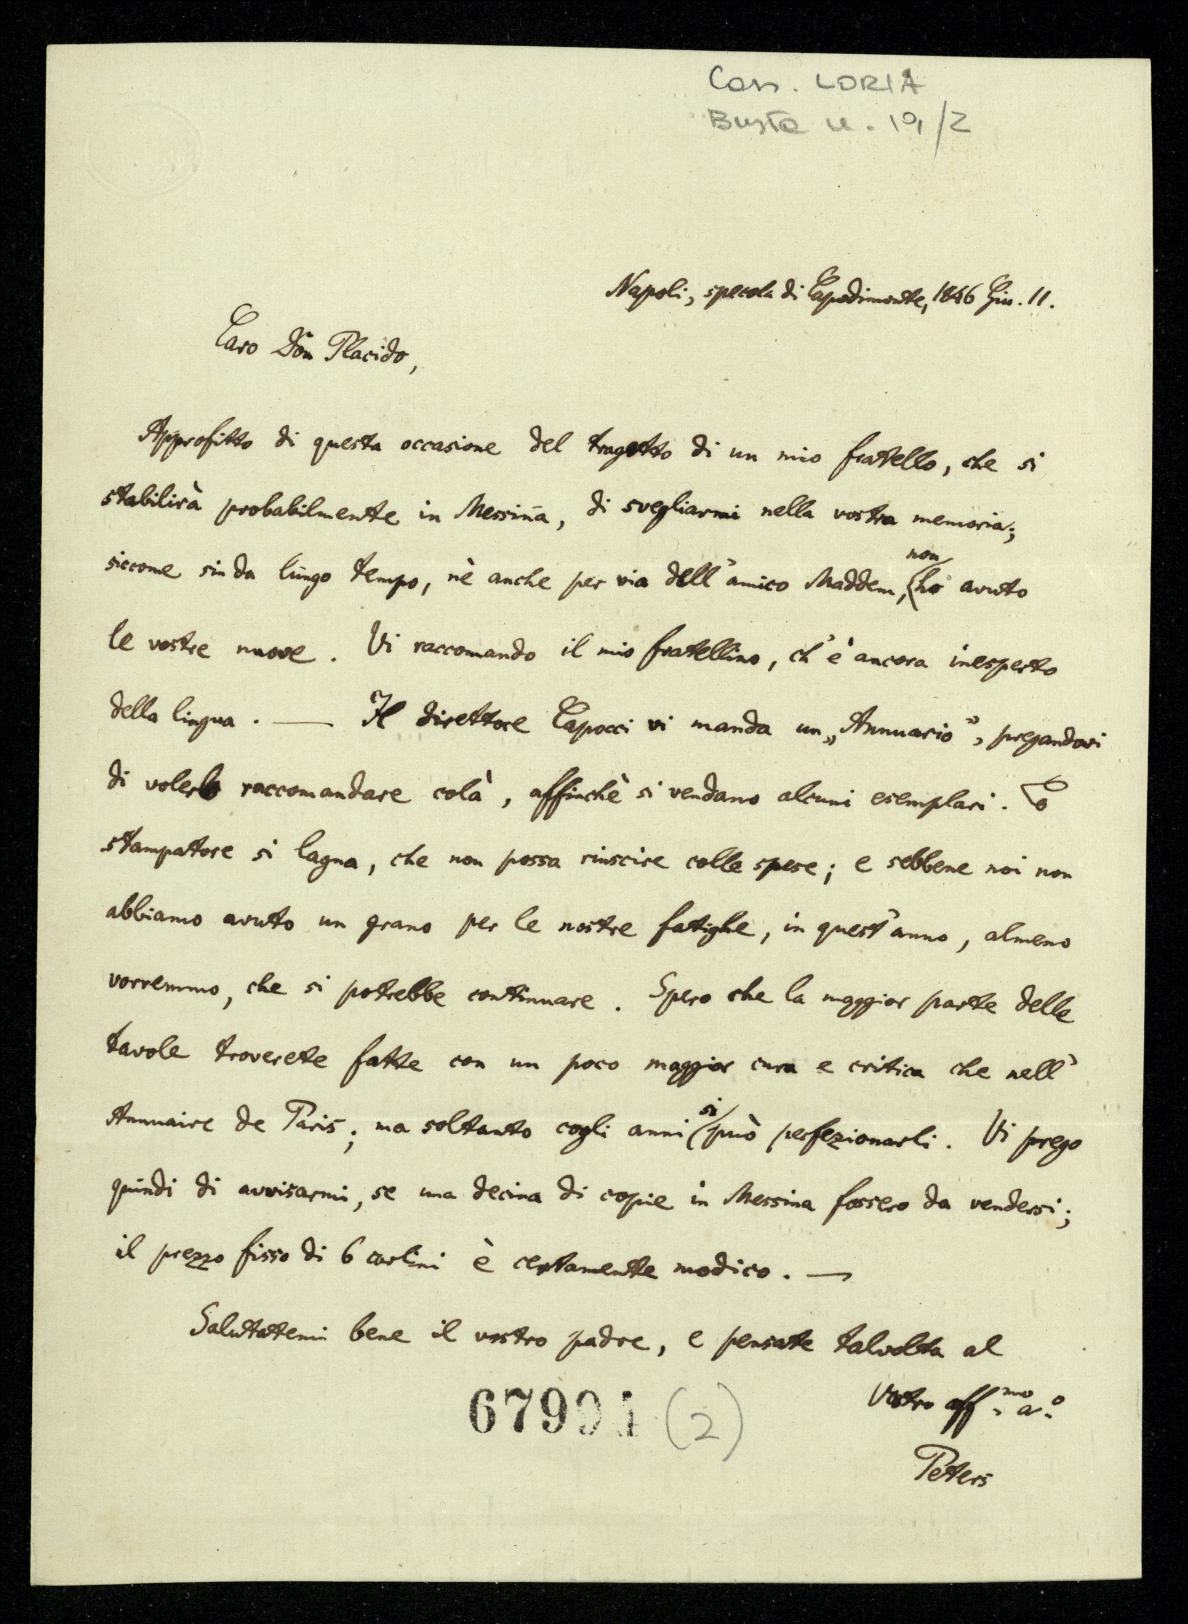 Cass. LORIA
Busta n. 19/2
Napoli, specola di Capodimonte, 1846 Giu. 11.
Caro Don Placido,
Approfitto di questa occasione del tragetto di un mio fratello, che si
stabilirà probabilmente in Messina, di svegliarmi nella vostra memoria;
siccome sin da lungo tempo, nè anche per via dell'amico Maddem, non ho avuto
le vostre nuove. Vi raccomando il mio fratellino, ch'è ancora inesperto
della lingua. — Il direttore Capocci vi manda un „Annuario”, pregandovi
di volerlo raccomandare colà, affinchè si vendano alcuni esemplari. Lo
stampatore si lagna, che non possa riuscire colle spese; e sebbene noi non
abbiamo avuto un grano per le nostre fatighe, in quest'anno, almeno
vorremmo, che si potrebbe continuare. Spero che la maggior parte delle
tavole troverete fatte con un poco maggior cura e critica che nell'
Annuaire de Paris; ma soltanto cogli anni si può perfezionarli. Vi prego
quindi di avvisarmi, se una decina di copie in Messina fossero da vendersi;
il prezzo fisso di 6 carlini è certamente modico. —
Salutatemi bene il vostro padre, e pensate talvolta al
Vostro aff.mo a.o
Peters
67994 (2)